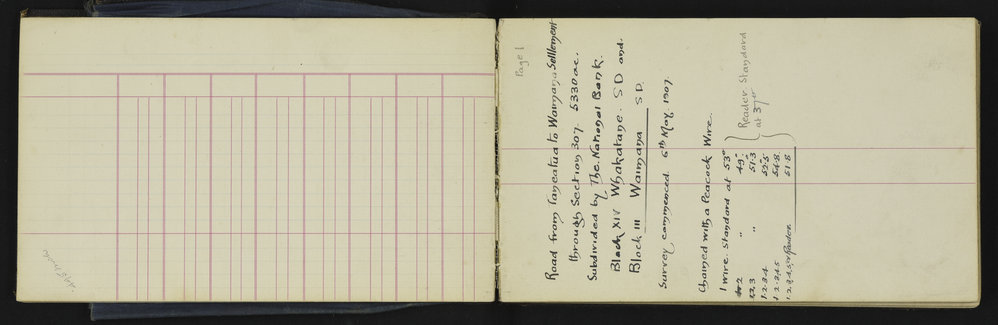 Page 1
Road from Taneatua to Waimana Settlement
through Section 307. 5330 ac.
Subdivided by The National Bank
Block XIV Whakatane. S D and.
Block III Waimana S D.
Survey commenced 6th May 1907
Chained with a Peacock Wire.
1 wire. Standard at 53°
2 " 49°
3 " 51.3
1.2.3.4. 52.5
1.2.3.4.5 54.8
1.2.3.4.5 & Reader. 51.8
Reader Standard
at 37